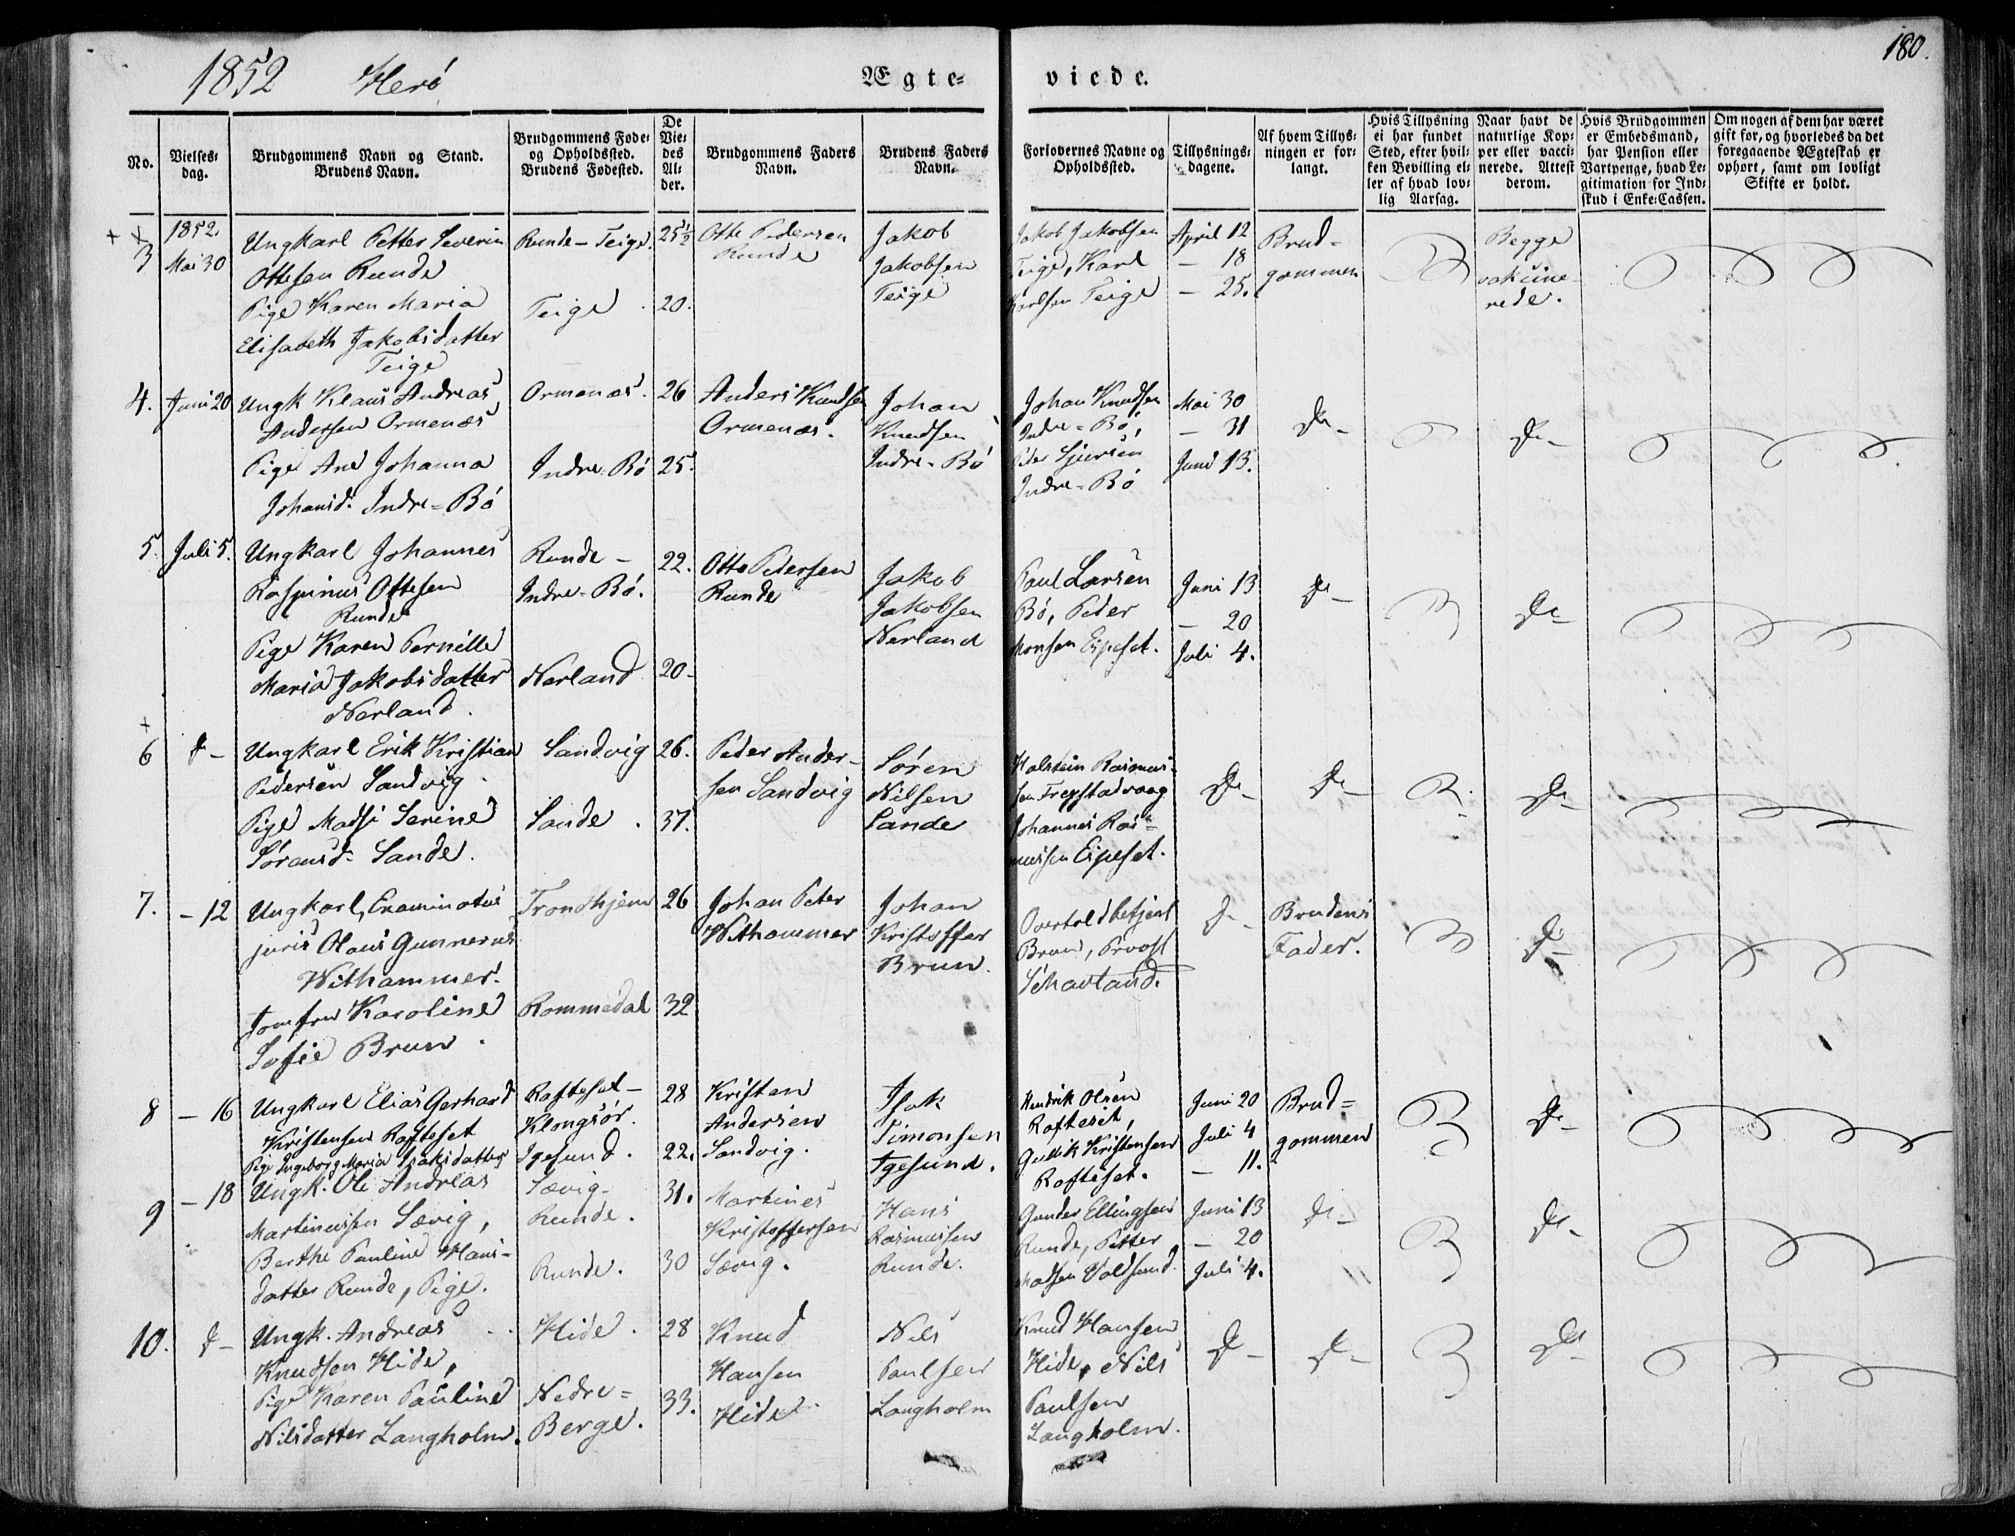 1852 Herö
Ægte=
viede.
180.
No.
Vielses=
dag.
Brudgommens Navn og Stand.
Brudens Navn.
Brudgommens Føde=
og Opholdssted.
Brudens Fødested.
De
Vie=
des
Al=
der.
Brudgommens Faders
Navn.
Brudens Faders
Navn.
Forlovernes Navne og
Opholdssted.
Tillysnings=
dagene.
Af hvem Tillys=
ningen er for=
langt.
Hvis Tillysning
ei har fundet
Sted, efter hvil=
ken Bevilling el=
ler af hvad lov=
lig Aarsag.
Naar havt de
naturlige Kop=
per eller vacci=
nerede. Attest
derom.
Hvis Brudgommen
er Embedsmand,
har Pension eller
Vartpenge, hvad Le=
gitimation for Ind=
skud i Enke=Cassen.
Om nogen af dem har været
gift før, og hvorledes da det
foregaaende Ægteskab er
ophørt, samt om lovligt
Skifte er holdt.
3
1852
Mai 30
Ungkarl Petter Severin
Ottesen Runde
Pige Karen Maria
Elisabeth Jakobsdatter
Teige
Runde - Teige.
Teige
25½
20.
Otte Pedersen
Runde
Jakob
Jakobsen
Teige
Jakob Jakobsen
Teige, Karl
Karlsen Teige
April 12
— 18
— 25.
Brud=
gommen
Begge
vakcine
rede.
4.
Juni 20
Ungk Klaus Andreas
Andersen Ormenæs
Pige Ane Johanna
Johansd. Indre=Bö
Ormenæs.
Indre-Bö
26
25.
Anders Knudsen
Ormenæs.
Johan
Knudsen
Indre-Bö
Johan Knudsen
Indre-Bö,
Peder Sjursen
Indre-Bö
Mai 30
— 31
Juni 13.
Do-
Do-
5.
Juli 5.
Ungkarl Johannes
Rasmus Ottesen
Runde
Pige Karen Pernille
Maria Jakobsdatter
Nerland.
Runde -
Indre-Bö.
Nerland
22.
20-
Otto Pedersen
Runde
Jakob
Jakobsen
Nerland
Paul Larsen
Bö, Peder
Monsen Eipeset.
Juni 13
— 20
Juli 4.
Do-
Do-
6
Do-
Ungkarl Erik Kristian
Pedersen Sandvig.
Pige Madsi Serine
Sörensd. Sande.
Sandvig
Sande.
26.
37.
Peder Ander-
sen Sandvig
Sören
Nilsen
Sande
Holstein Rasmus-
sen Frejstadvaag
Johannes Ras-
mussen Eipeset.
Do-
Do-
Do-
7.
- 12
Ungkarl, Examinatus
juris Olaus Gunnerus
Withammer.
Jomfru Karoline
Sofie Brun.
Trondhjem
Rommedal
26
32
Johan Peter
Withammer
Johan
Kristoffer
Brun.
Overtoldbetjent
Brun, Provst
Schavland.
Do-
Brudens
Fader.
Do-
8
— 16
Ungkarl Elias Gerhard
Kristensen Rafteset
Pige Ingeborg Maria Isaksdatter
Rafteset -
Klongsör.
Igesund.
28
22.
Kristen
Andersen
Sandvig.
Isak
Simonsen
Igesund.
Hendrik Olsen
Rafteset,
Gullik Kristensen
Rafteset.
Juni 20
Juli 4
— 11.
Brud=
gommen
Do-
9
— 18
Ungk. Ole Andreas
Martinussen Sævig,
Berthe Pauline Hans-
datter Runde, Pige.
Sævig-
Runde.
Runde.
31.
30
Martines
Kristoffersen
Sævig.
Hans
Rasmussen
Runde.
Gunder Ellingsen
Runde, Petter
Madsen Voldsund.
Juni 13
— 20
Juli 4.
Do-
Do-
10.
Do-
Ungk. Andreas
Knudsen Hide,
Pige Karen Pauline
Nilsdatter Langholm.
Hide.
Nedre=
Berge.
28
33.
Knud
Hansen
Hide
Nils
Paulsen
Langholm
Knud Hansen
Hide, Nils
Paulsen
Langholm.
Do-
Do-
Do-